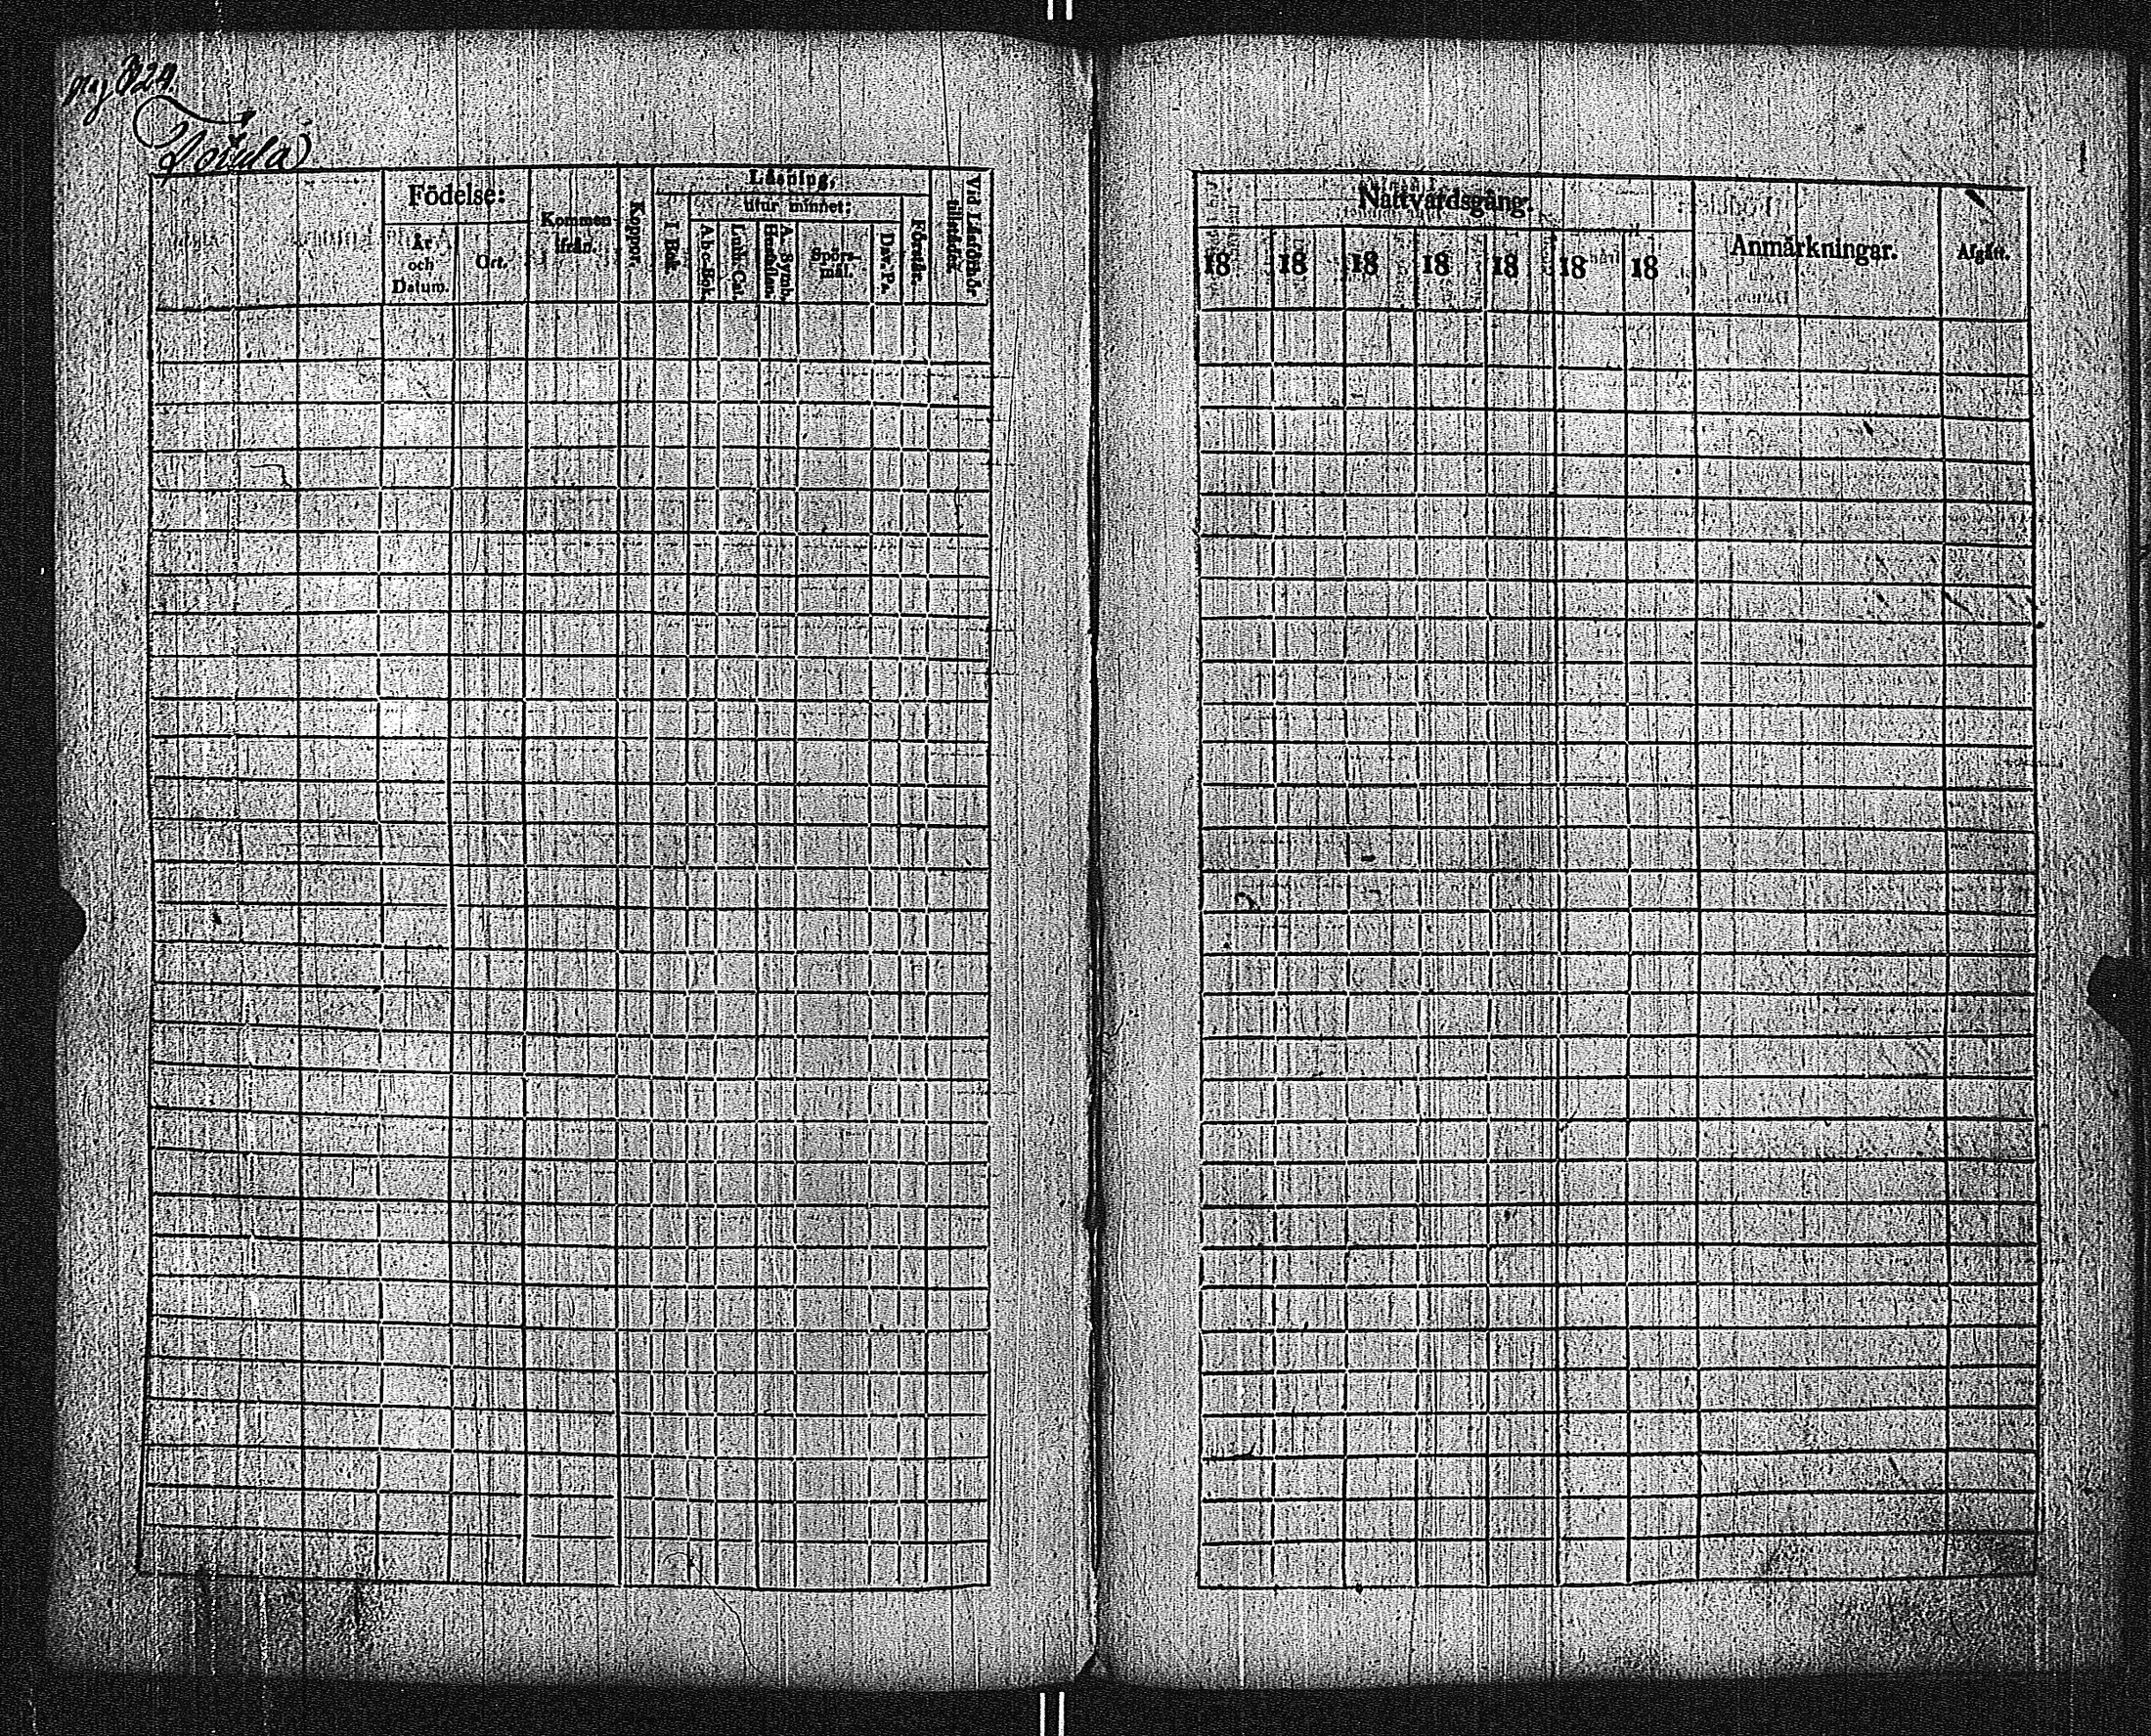 pag 324.
Födelse:
År och Datum.
Ort.
Kommen ifrån.
Koppor.
Läsning,
I Bok.
utur minnet:
A-b-c-Bok.
Luth. Cat.
A. Symb. Hustaflan.
Spörs-mål.
Dav. Ps.
Förstår.
Vid Läsförhör tillstädes.
Nattvardsgång.
18 18 18 18 18 18 18
Anmärkningar.
Afgått.